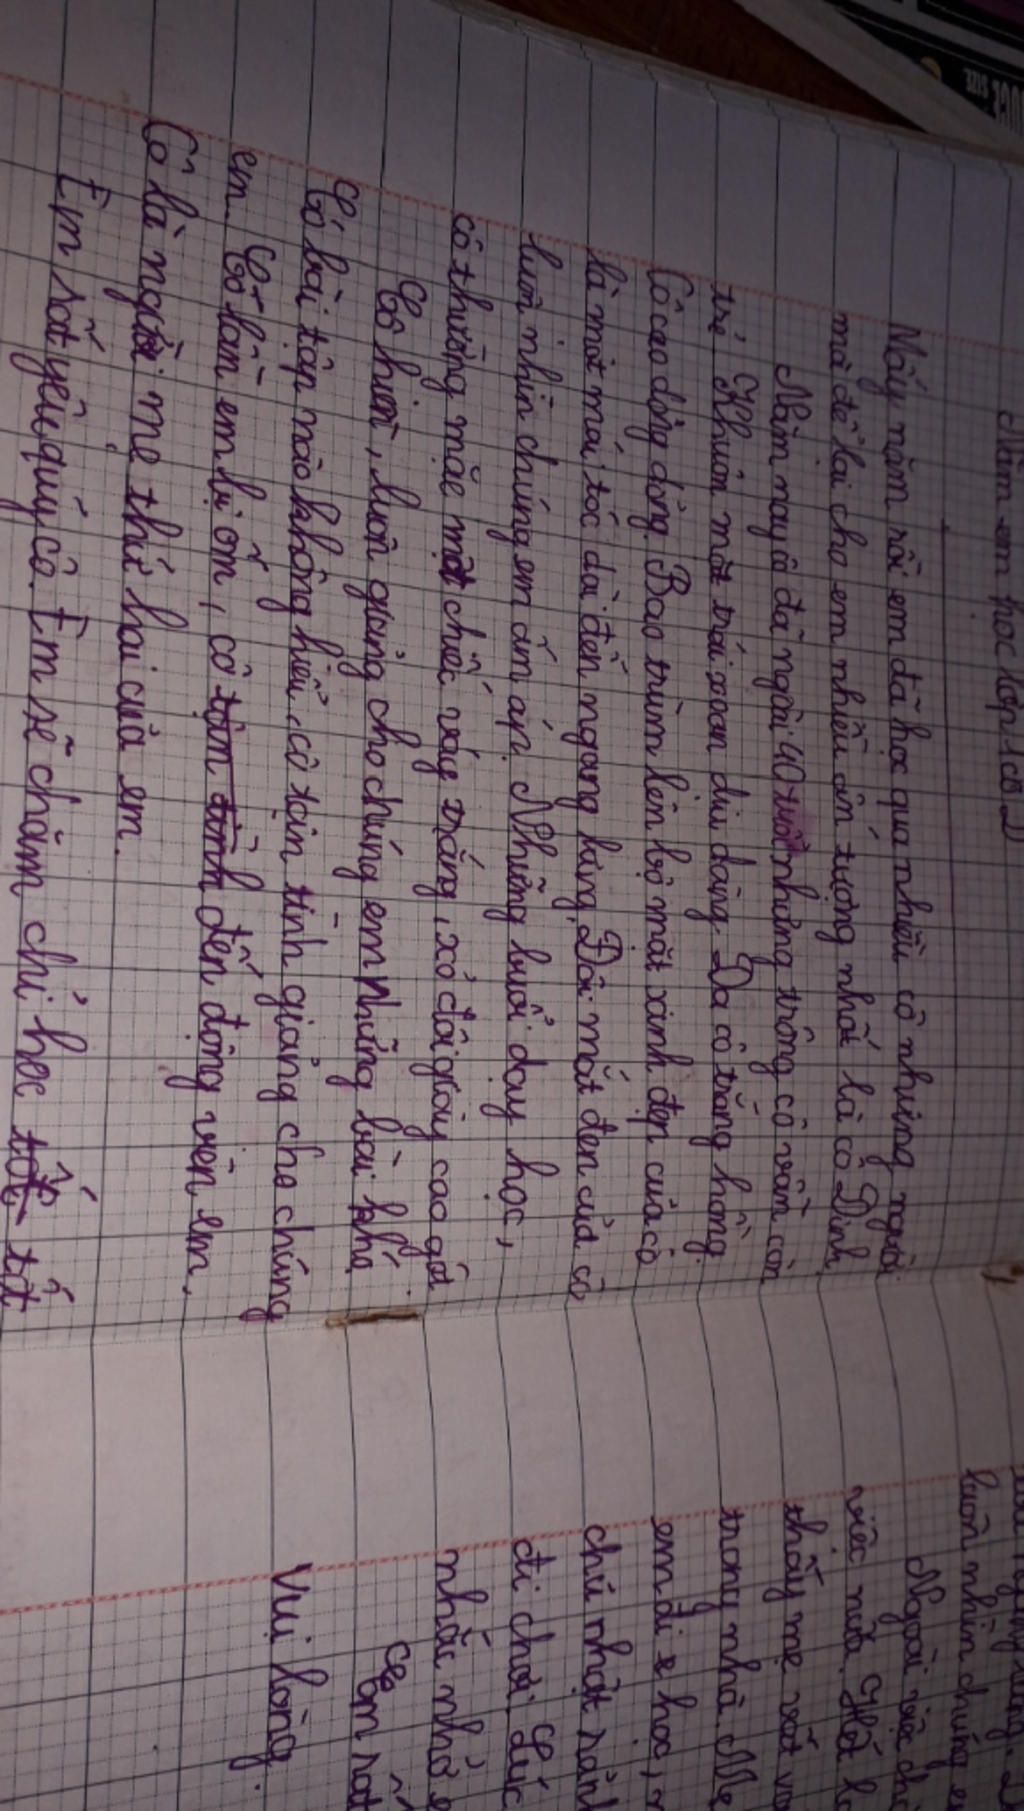 Năm em học lớp 1 cô D
Mấy năm rồi em đã học qua nhiều cô nhưng người
mà để lại cho em nhiều ấn tượng nhất là cô Dinh.
Năm nay cô đã ngoài 40 tuổi nhưng trông cô vẫn còn
trẻ. Khuôn mặt trái xoan dịu dàng. Da cô trắng hồng.
Cô cao dong dỏng. Bao trùm lên bộ mặt xinh đẹp của cô
là một mái tóc dài đến ngang lưng. Đôi mắt đen của cô
luôn nhìn chúng em ấm áp. Những buổi dạy học,
cô thường mặc một chiếc váy trắng, xỏ đôi giày cao gót
Cô hiền, luôn giảng cho chúng em những bài khó.
Có bài tập nào không hiểu, cô tận tình giảng cho chúng
em. Có lần em bị ốm, cô tận tình đến động viên em.
Cô là người mẹ thứ hai của em.
Em rất yêu quý cô. Em sẽ chăm chỉ học tốt
luôn nhìn chúng e
Ngoài việc ch
việc nữa.
thấy mẹ rất v
trong nhà. Mẹ
em đi học,
chủ nhật
đi chơi. Lúc
nhắc nhở e
Em rất
vui lòng.
SIZE